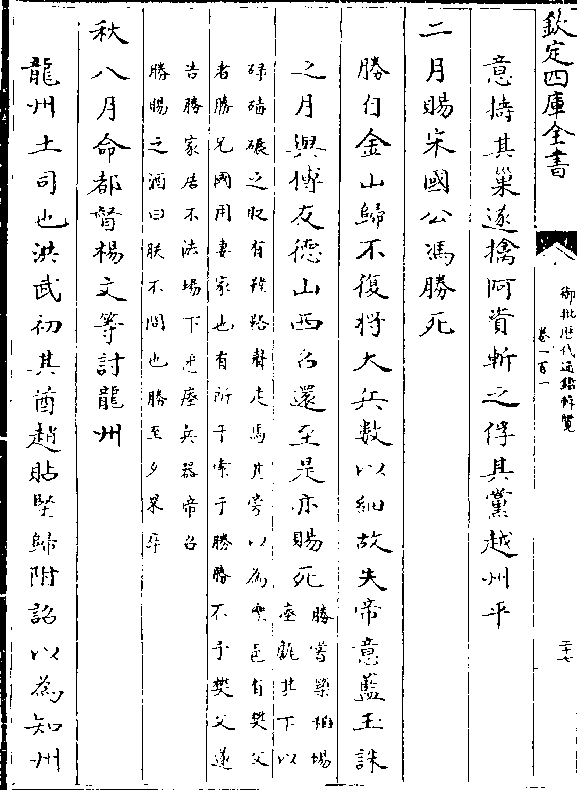 欽定四庫全書
御批歷代通鑑輯覽
卷一百一
二十七
意擣其巢遂擒阿資斬之俘其黨越州平
二月賜宋國公馮勝死
勝自金山歸不復將大兵數以細故失帝意藍玉誅
之月與傅友德山西召還至是亦賜死
勝嘗築稻場
瘞甒其下以
碌碡碾之取有鞺鞳聲走馬其旁以為樂邑有樊父
者勝兄國用妻家也有所干索于勝勝不予樊父遂
告勝家居不法場下悉瘞兵器帝召
勝賜之酒曰朕不問也勝至夕暴卒
秋八月命都督楊文等討龍州
龍州土司也洪武初其酋趙貼堅歸附詔以為知州